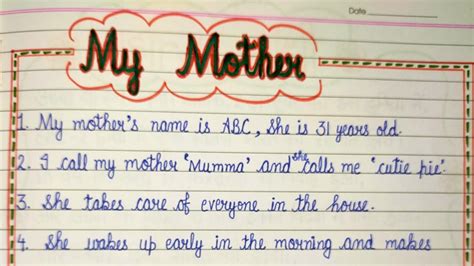 Date
My Mother
1. My mother's name is ABC, She is 31 years old.
2. I call my mother "Mumma' and she calls me "cutie pie".
3. She takes care of everyone in the house.
4. She wakes up early in the morning and makes